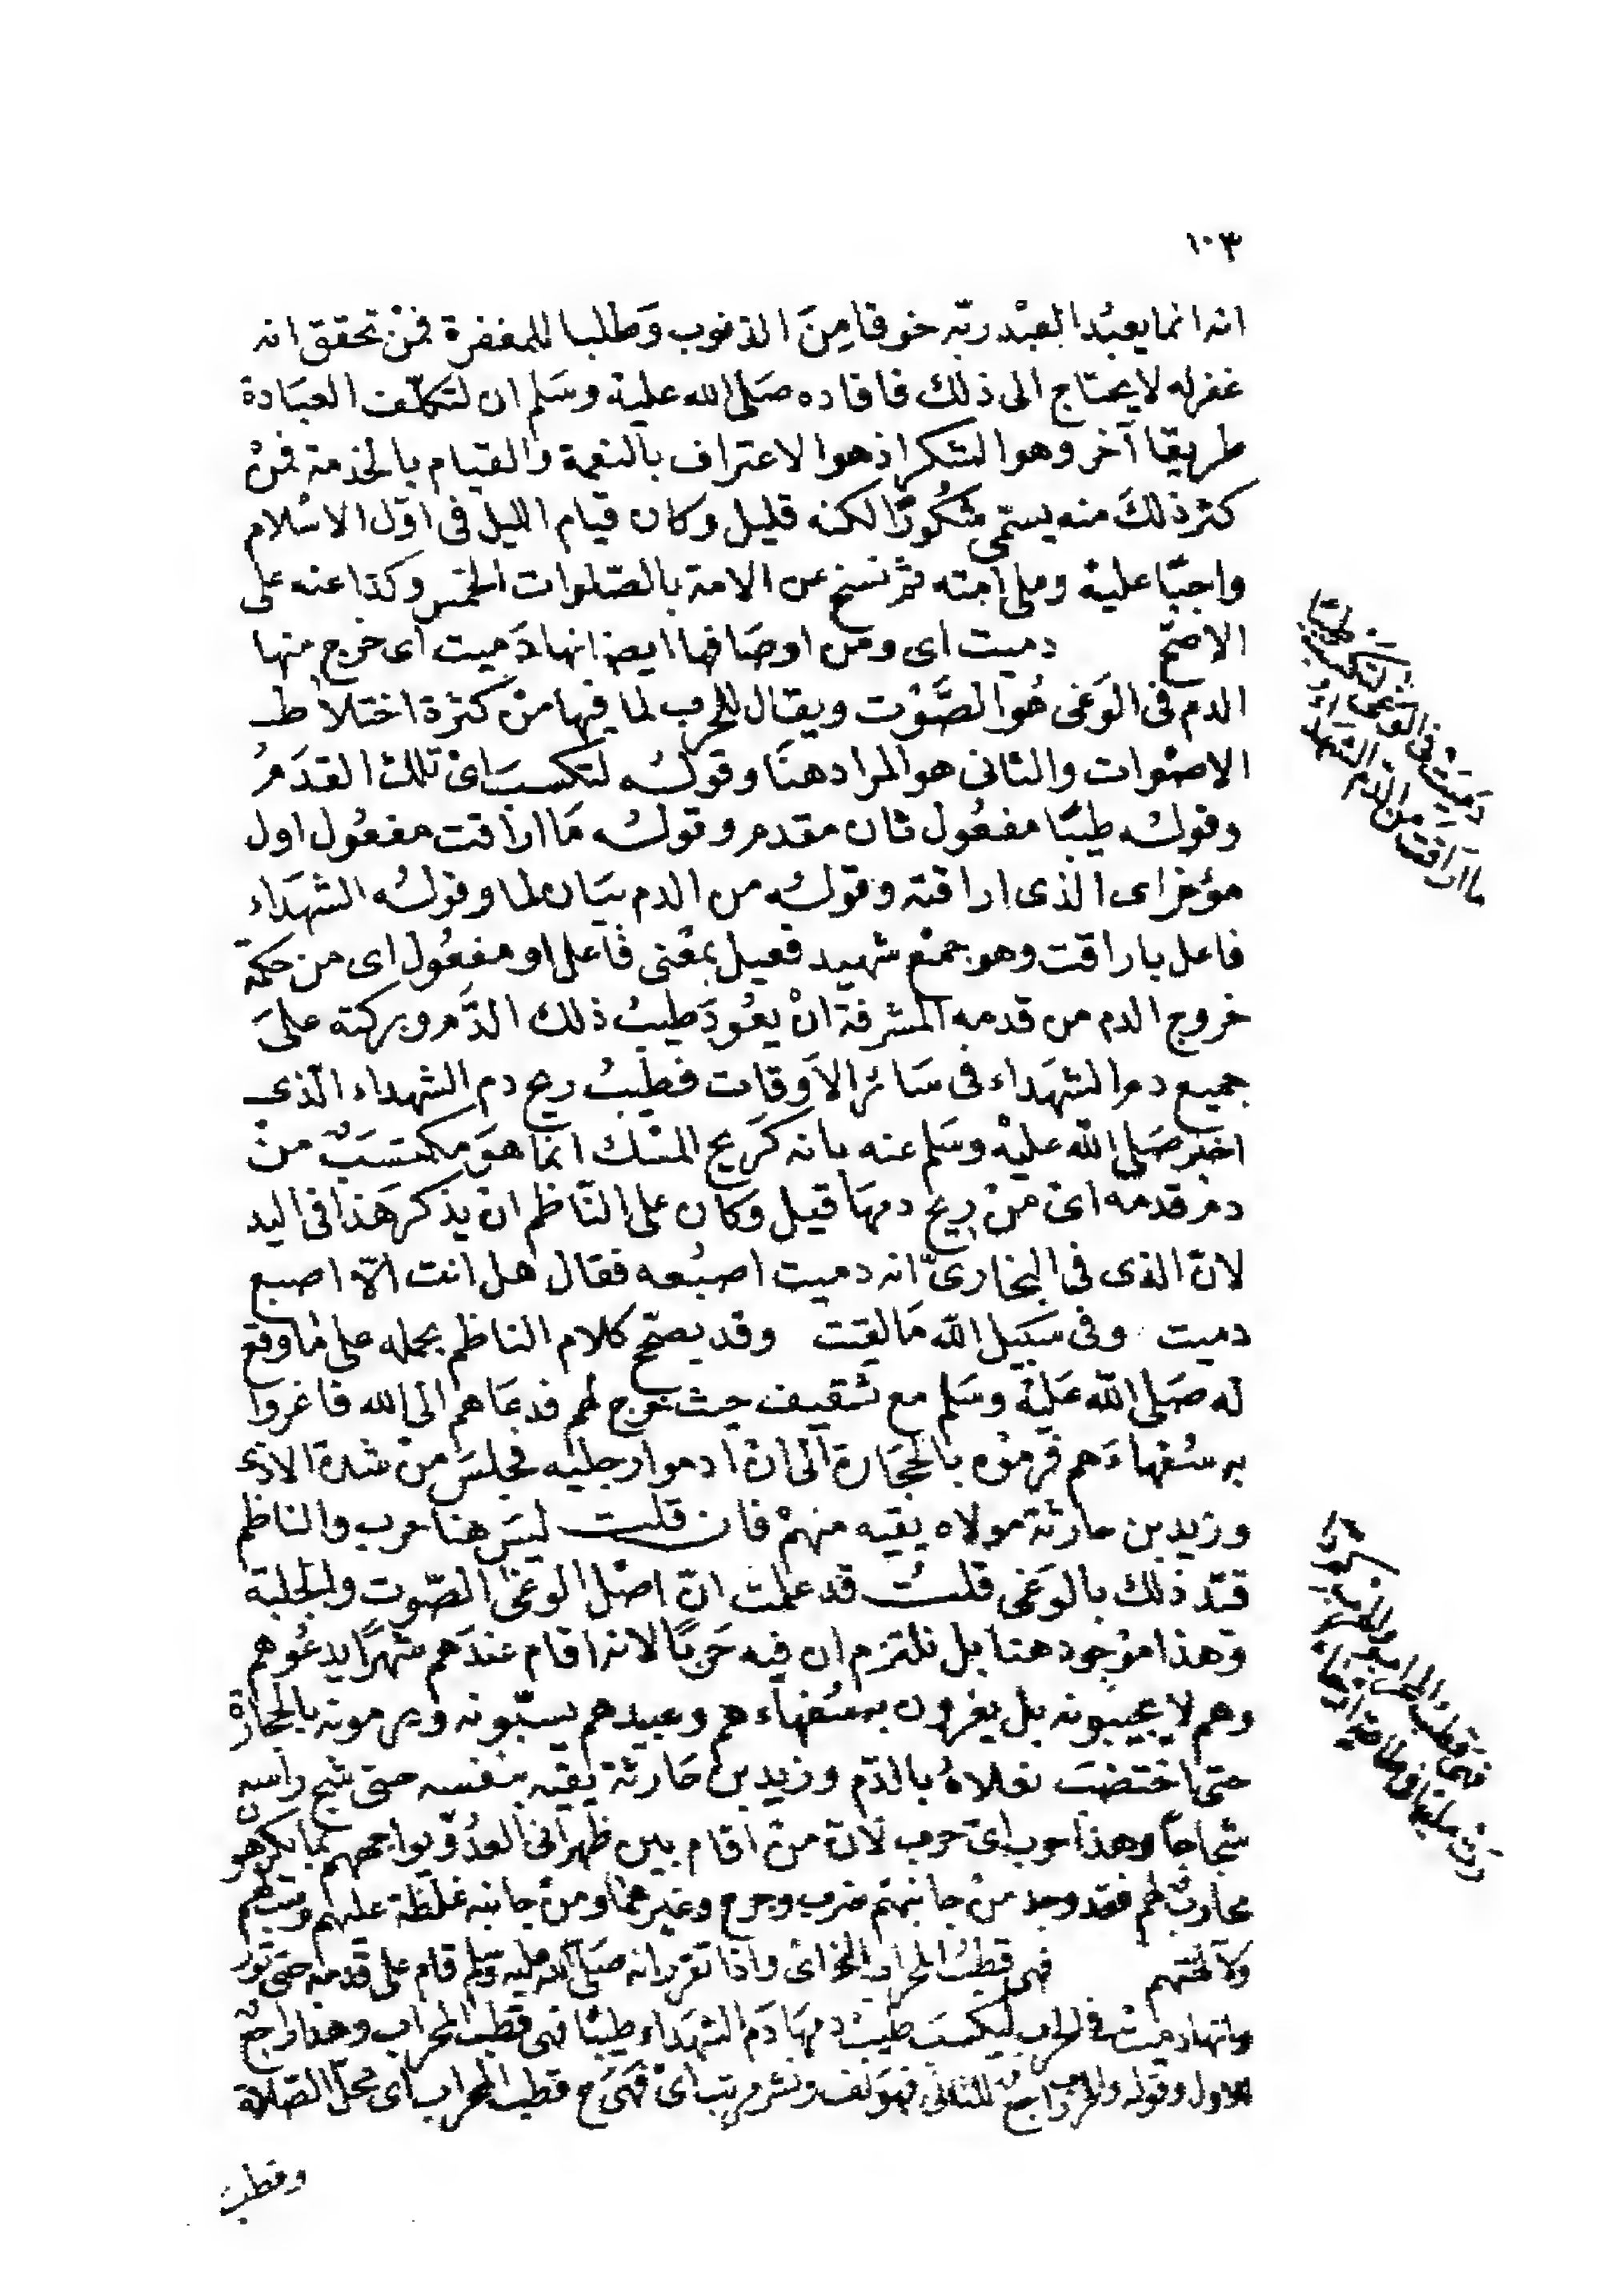 ١٠٣
انه انما يعبُد العبْد ربّه خوفا مِنَ الذنوب وَطلبا للمغفرة فمَنْ تحقق انه
غفرله لا يحتاج الى ذلك فافاده صَلى الله عليْه وسَلم ان لتكلّف العبَادة
طريقا آخر وهو الشكر اذ هو الاعتراف بالنعمة والقيام بالخدمة فمنْ
كثر ذلكَ منه يسمّى شكُورًا لكنه قليل وكان قيام الليل فى اوّل الاسْلام
واجبًا عليْه وعلى امته ثم نسخ عن الامة بالصّلوات الخمس وكذا عنه على
الاصحّ دميت اى ومن اوصَافها ايضا انها دَميت اى خرج منها
الدم فى الوَغى هُو الصَّوْت ويقال للحرب لما فيها منْ كثرة اختلاط
الاصْوات والثانى هو المراد هنَا وقولُه لتكسبَ اىْ تلك القدَمُ
وقولُه طيبًا مفعُول ثان مقدم وقولُه مَا اراقت مفعُول اول
مؤخر اى الذى اراقته وقولُه من الدم بيَان لما وقولُه الشهَداء
فاعل باراقت وهو جمْع شهيد فعيل بمعْنى فاعل او مفعُول اى من حكمة
خروج الدم من قدمه المشرفة انْ يعُودَ طيبُ ذلك الدَّم وبركته علىَ
جميع دم الشهَداء فى سَائر الاَوقات فطيبُ ريح دم الشهداء الّذى
اخبَر صَلى الله عليْه وسَلم عنه بانه كرَيح المسْك انمَا هوَ مكتسَبٌ منْ
دم قدمه اىْ منْ ريح دمهَا قيل وَكان على النّاظم ان يذكر هَذا فى اليد
لانّ الذى فى البخارىّ انه دميت اصبُعه فقال هل انت الّا اصبع
دميت وفى سَبيل الله مَا لقيت وقد يصحّ كلام الناظم بحمله على مَا وقع
له صَلى الله عَليْه وسَلم مع ثقيف حيث خرج لهم فدعَاهم الى الله فاغروا
به سُفهاءَهم فرموْه بالحجَارة الى ان ادموا رجليْه فجلسَ منْ شدة الاذى
وزيد بن حارثة مولاه يقيه منهمْ فان قلت ليسَ هنا حرب والناظم
قيّد ذلك بالوَغى قلتُ قد علمت انّ اصْل الوغى الصّوت والجلبة
وهذا موْجود هنا بل نلتزم ان فيه حَربًا لانه اقام عندَهم شهرًا يدعُوهم
وهم لا يجيبونه بل يغرون به سُفهاءهم وعبيدهم يسبّونه ويرمونه بالحجارة
حتى اختضبَت نعلاهُ بالدّم وزيد بن حَارثة يقيه بنفسه حتى شج راسه
شجاجًا وهذا حرب اىْ حرب لانّ منْ اقام بين ظهرانى العدُوّ يواجههم بما يكرهو
محاربٌ لهم فقد وجد منْ جانبهمْ ضرب وجرح وغيرهمَا ومنْ جانبه غلظة عليهم وسبّهم
وَلآلهتهم فهى قطبُ المحراب الخ اىْ واذا تقرر انه صَلى الله عليه وسَلم قام على قدمه حتى تورّ
وانها دميتْ فى الحرب ليكسبَ طيبُ دمهَا دَم الشهَداء طيبًا فهى قطبُ المحراب وهذا راجعٌ
للاول وقوله والحرب راجعٌ للثانى فهوَ لف ونشر مرتب اىْ فهَى ح قطب المحراب اى محلّ الصّلاة
وقطب
دَميَتْ فى الوَغى لتكسِبَ طيبًا
ما اراقَتْ من الدم الشهداءُ
فهى قطبُ المحراب والحرب كم دا
رتْ عليها فى طاعةٍ ارحاءُ